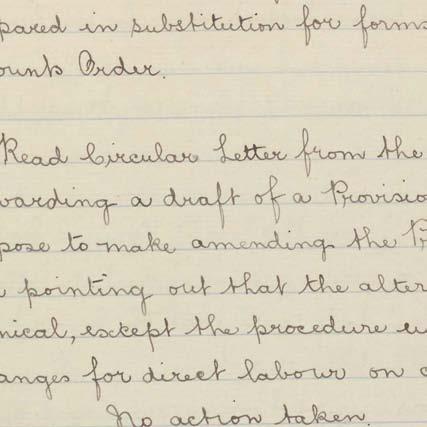 pared in substitution for forms
ounts Order.
Read Circular Letter from the
warding a draft of a Provisio
pose to make amending the Pr
pointing out that the alter
nical, except the procedure
anges for direct labour on
No action taken.